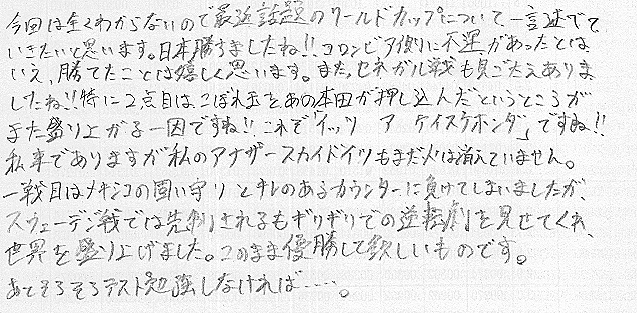 今回は全くわからないので最近話題のワールドカップについて一言述べて
いきたいと思います。日本勝ちましたね!!コロンビア側に不運があったとは
いえ、勝てたことは嬉しく思います。また、セネガル戦も見ごたえありま
したね!!特に2点目はこぼれ玉をあの本田が押し込んだというところが
また盛り上がる一因ですね!!これぞ「イッツ ア ケイスケホンダ」ですね!!
私事でありますが私のアナザースカイドイツもまだ火は消えていません。
一戦目はメキシコの固い守りとキレのあるカウンターに負けてしまいましたが、
スウェーデン戦では先制されるもギリギリでの逆転劇を見せてくれ、
世界を盛り上げました。このまま優勝して欲しいものです。
あとそろそろテスト勉強しなければ……。